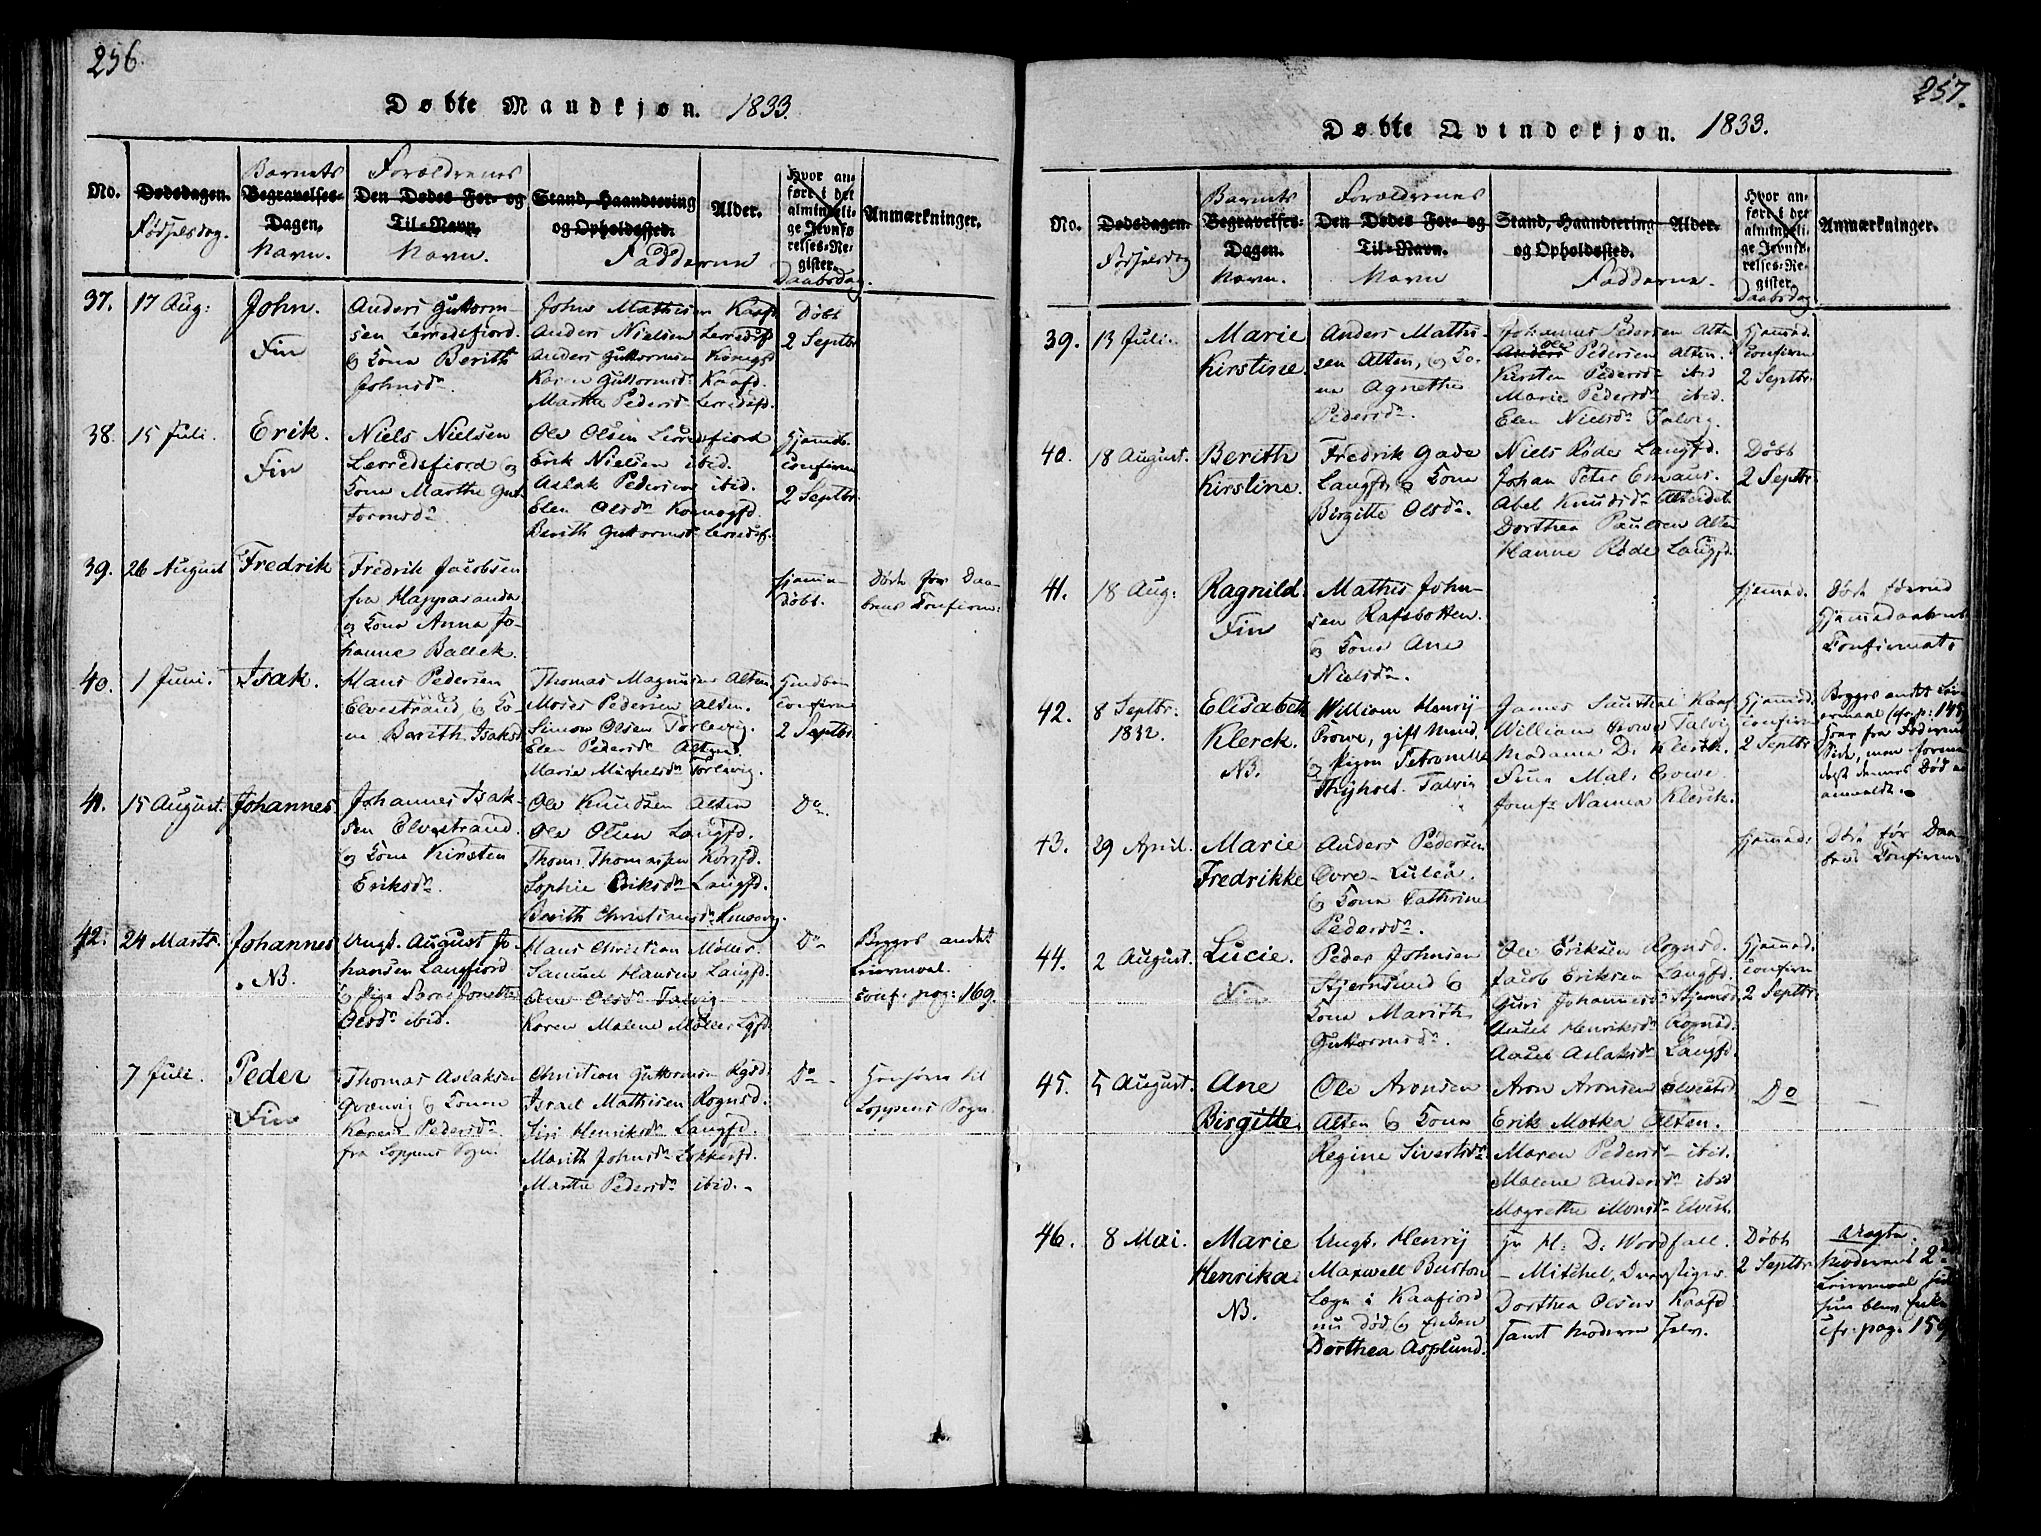 256.
Døbte Mandkjøn. 1833.
No.
Dødsdagen.
Fødselsdag.
Barnets
Begravelses-
Dagen.
Navn.
Forældrenes
Den Dødes For- og
Til-Navn.
Navn.
Stand, Haandtering
og Opholdssted.
Alder.
Fadderne
Hvor an-
ført i det
almindeli-
ge Jevnfø-
relses-Re-
gister.
Daabsdag.
Anmærkninger.
37.
17 Aug:
John.
Fin
Anders Guttorm-
sen Lerredsfiord.
og Kona Berith
Johnsdr.
John Mathisen Kaafd
Anders Nielsen Lerredsfd
Anders Guttormsen Kongsfd
Karen Guttormsdr Kaafd.
Marthe Pedersdr Lerredsfd.
Døbt
2 Septbr
38.
15 Juli.
Erik.
Fin
Niels Nielsen
Lerredsfiord og
Kona Marthe Gut-
tormsdr
Ole Olsen Lerredsfiord
Erik Nielsen ibid.
Aslak Pedersen ibid.
Elen Olsdr Komagfd.
Berith Guttormsdr Lerredsf.
Hjemdb.
confirm
2 Septbr
39.
26 August
Fredrik
Fredrik Jacobsen
fra Happaranda
og Kona Anna Jo-
hanne Ballek.
Hjemme-
døbt.
Døde før Daa-
bens Confirm:
40.
1 Juni.
Isak.
Hans Pedersen
Elvestrand, og Ko-
na Berith Isaksdr
Thomas Magnusen Alten
Moses Pedersen Alten.
Simon Olsen Torlevig.
Elen Pedersdr Alten
Marie Michelsdr Torlevig.
confirm
2 Septbr
41.
15 August.
Johannes
Johannes Isak-
sen Elvestrand.
og Kona Kirsten
Eriksdr.
Ole Knudsen Alten
Ole Olsen Langfd.
Thoms. Thomassen Korsfd.
Sophie Eriksdr Langfd.
Berith Christiansdr
Do
42.
24 Marts.
Johannes
NB.
Ungk. August Jo-
hansen Langfiord
og Pige Sara Jonette
Olsdr ibid.
Hans Christian Møller
Samuel Hansen Langfd.
Ane Olsdr Talvig
Karen Malene Møller Lgfd
Do
Begges andet
Leiermaal.
conf: pag: 169.
7 Juli.
Peder
Fin
Thomas Aslaksen
Qvænvig og Konen
Karen Pedersdr
fra Loppens Sogn.
Christian Guttormsen Rgsd.
Israel Mathisen Rognsd.
Siri Henriksdr Langfd.
Marith Johnsdr Lokkerfd.
Marthe Pedersdr ibid.
Do
Henføres til
Loppens Sogn.
257.
Døbte Qvindekjøn. 1833.
No.
Dødsdagen.
Fødselsdag
Barnets
Begravelses-
Dagen.
Navn.
Forældrenes
Den Dødes For- og
Til-Navn.
Navn
Stand, Haandtering
og Opholdssted.
Alder.
Fadderne.
Hvor an-
ført i det
almindeli-
ge Jevnfø-
relses-Re-
gister.
Daabsdag
Anmærkninger.
39.
13 Juli.
Marie
Kirstine.
Anders Mathi-
sen Alten, og Ko-
na Agnethe
Pedersdr.
Johannes Pedersen Alten
Anders Ole Pedersen Alten.
Kirsten Pedersdr ibid
Marie Pedersdr ibid.
Elen Nielsdr Talvig.
Hjemmd.
confirm
2 Septbr.
40.
18 August.
Berith
Kirstine.
Fredrik Gade
Langfd og Kona
Birgitte Olsdr.
Niels Røde Langfd.
Johan Peter Emaus.
Abel Knudsdr Alteidet.
Dorthea Paulsen Alten
Hanne Røde Langfd.
Døbt
2 Septbr
41.
18 Aug:
Ragnild.
Fin
Mathis John-
sen Rafsbotten.
og Kona Ane
Nielsdr.
Hjemmd.
Død forend
Hjemmedaabens
Confirmat.
42.
8 Septbr:
1832.
Elisabeth
Klerck.
NB.
William Henrij
Crowe, gift Mand,
og Pigen Petronelle
Thijholt. Talvig
William Crowe Talvig
Madame D. Klerck.
Jomfr Nanna Klerck.
Hjemmd.
confirm
2 Septbr
Begges andet Lei-
ermaal (cfr p: 145)
43.
29 April.
Marie
Fredrikke
Anders Pedersen
Ovre-Luleå.
og Kona Cathrine
Pedersdr.
Hjemmd:
Død før Daa-
bens Confirm.
44.
2 August.
Lucie.
Peder Johnsen
Stjernsund og
Kona Marith
Guttormsdr.
Ole Eriksen Rognsd.
Jacob Eriksen Langfd.
Guri Johannesdr Stjernsd
Aasel Henriksdr Rognsd.
Aasel Aslaksdr Langfd.
Hjemmd.
confirm
2 Septbr.
45.
5 August.
Ane
Birgitte.
Ole Aronsen
Alten og Kona
Regine Sivertsdr
Aron Aronsen Elvestrd
Erik Motka Alten.
Maren Pedersdr ibid.
Malene Andersdr ibid
Magrethe Monsdr Elvestr.
Do
46.
8 Mai.
Marie
Henrika.
NB.
Ungk. Henrij
Maxwell Burton
Læge i Kaafiord
nu død og Enken
Dorthea Asplund.
Hr H: D: Woodfall.
– Mitchel,
Dorthea Olsen Kaafd
samt Moderen selv.
Døbt
2 Septbr
Moderens 2det
Leiermaal
hun blev Enke
cfr. pag. 159